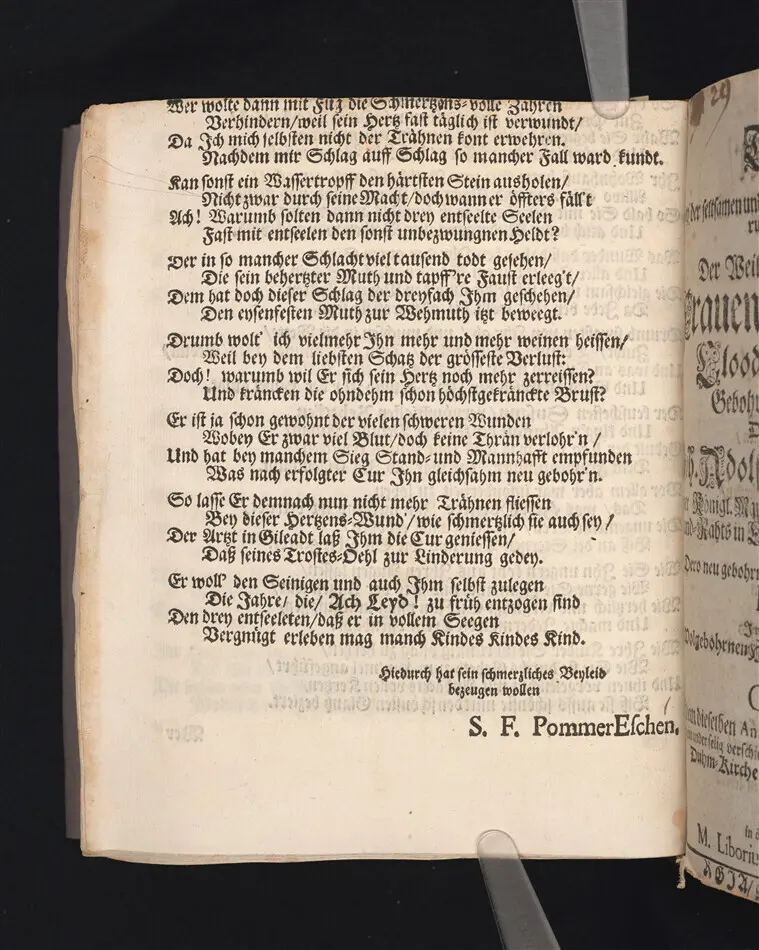 Wer wolte dann mit Fug die Schmertzens-volle Zähren
Verhindern/weil sein Hertz fast täglich ist verwundt/
Da Ich mich selbsten nicht der Trähnen kont erwehren.
Nachdem mir Schlag auff Schlag so mancher Fall ward kundt.
Kan sonst ein Wassertropff den härtsten Stein ausholen/
Nicht zwar durch seine Macht/doch wann er öffters fäll't
Ach! Warumb solten dann nicht drey entseelte Seelen
Fast mit entseelen den sonst unbezwungnen Heldt?
Der in so mancher Schlacht viel tausend todt gesehen/
Die sein behertzter Muth und tapff're Faust erleeg't/
Dem hat doch dieser Schlag der dreyfach Ihm geschehen/
Den eysenfesten Muth zur Wehmuth itzt beweegt.
Drumb wolt' ich vielmehr Ihn mehr und mehr weinen heissen/
Weil bey dem liebsten Schatz der grösseste Verlust:
Doch! warumb wil Er sich sein Hertz noch mehr zerreissen?
Und kräncken die ohndehm schon höchstgekränckte Brust?
Er ist ja schon gewohnt der vielen schweren Wunden
Wobey Er zwar viel Blut/doch keine Thrän verlohr'n /
Und hat bey manchem Sieg Stand-und Mannhafft empfunden
Was nach erfolgter Cur Ihn gleichsahm neu gebohr'n.
So lasse Er demnach nun nicht mehr Trähnen fliessen
Bey dieser Hertzens-Wund'/wie schmertzlich sie auch sey/
Der Artzt in Gileadt laß Ihm die Cur geniessen/
Daß seines Trostes-Oehl zur Linderung gedey.
Er woll' den Seinigen und auch Ihm selbst zulegen
Die Jahre/ die/ Ach Leyd! zu früh entzogen sind
Den drey entseeleten/daß er in vollem Seegen
Vergnügt erleben mag manch Kindes Kindes Kind.
Hiedurch hat sein schmerzliches Beyleid
bezeugen wollen
S. F. PommerEschen.
29
der seltsamen
Der Weil
Gebohr
Königl.
Dero neu gebohr
dieselben An
Duhm-Kirche
M. Liboriu